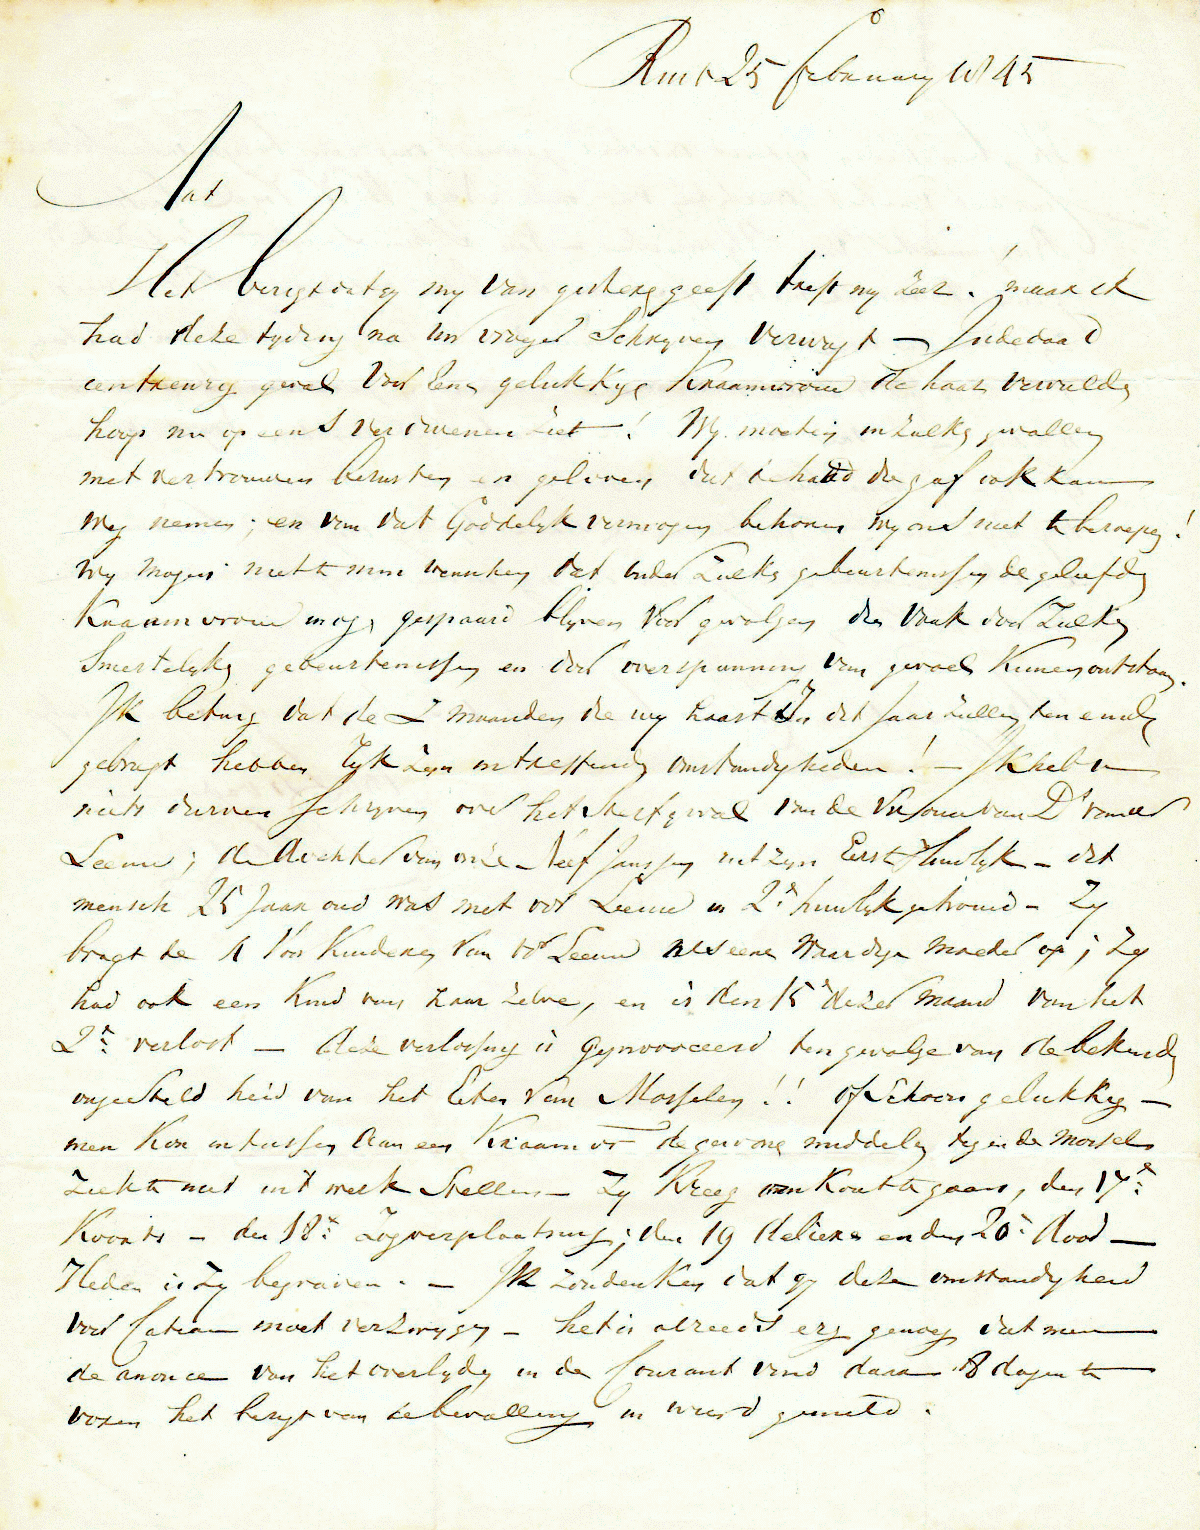 Rm 25 february 1845
Aat
Het berigt dat gy my van gistere geeft treft my zeer! maar ik
had deze tyding na uw vroeger Schryven verwagt — Indedaad
een treurig geval voor Eene gelukkige Kraamvrouw die haar vervulde
hoop nu op eens verdwenen ziet! Wy moeten in zulke gevallen
met vertrouwen berusten en geloven dat de hand die gaf ook kan
weg nemen; en van dat Goddelyk vermogen behoren wy ons niet te beroepen!
Wy mogen niet te min wenschen dat onder zulke gebeurtenissen de geliefde
Kraamvrouw moge gespaard blyven voor gevolgen die vaak door zulke
Smertelyke gebeurtenissen en door overspanning van gevoel kunnen ontstaan.
Ik betuig dat de 2 maanden die wy haast in dit Jaar zullen ten einde
gebragt hebben ryk zyn in treffende omstandigheden! — Ik heb u
niets durven Schryven over het Sterfgeval van de Vrouw van Ds van der
Leeuw; de dochter van neef Janssen uit zyn Eerste Huwlyk — dit
mensch 25 Jaar oud was met Leeuw in 2e huwlyk getrouwd — Zy
bragt de 4 voor Kinderen van Leeuw als eene waardige moeder op; zy
had ook een Kind van haar zelve, en is den 15e dezer maand van het
2e verlost — deze verlossing is geprovoceerd ten gevolge van de bekende
ongesteldheid van het Eten van Mosselen!! ofschoon gelukkig —
men kon intusschen aan een Kraamvr de gewone middelen tegen de mossel
ziekte niet in 't werk Stellen — Zy Kreeg den 17e
Koorts — den 18e Zogverplaatsing; den 19 delire en den 20e dood —
Heden is zy begraven. — Ik zou denken dat gy deze omstandigheid
voor Cato moet verzwygen — het is alreeds erg genoeg dat men
de anonce van het overlyden in de Courant vind daar 8 dagen te
voren het berigt van de bevalling in wierd gemeld.